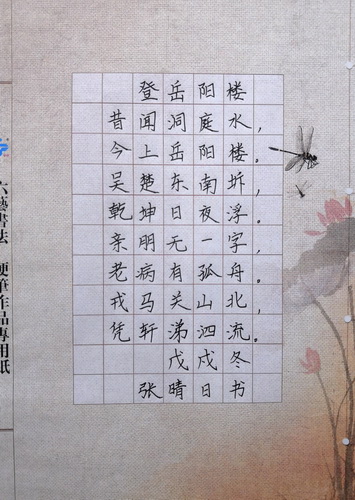 登岳阳楼
昔闻洞庭水，
今上岳阳楼。
吴楚东南坼，
乾坤日夜浮。
亲朋无一字，
老病有孤舟。
戎马关山北，
凭轩涕泗流。
戊戌冬
张晴日书
六藝書法 硬筆作品專用紙